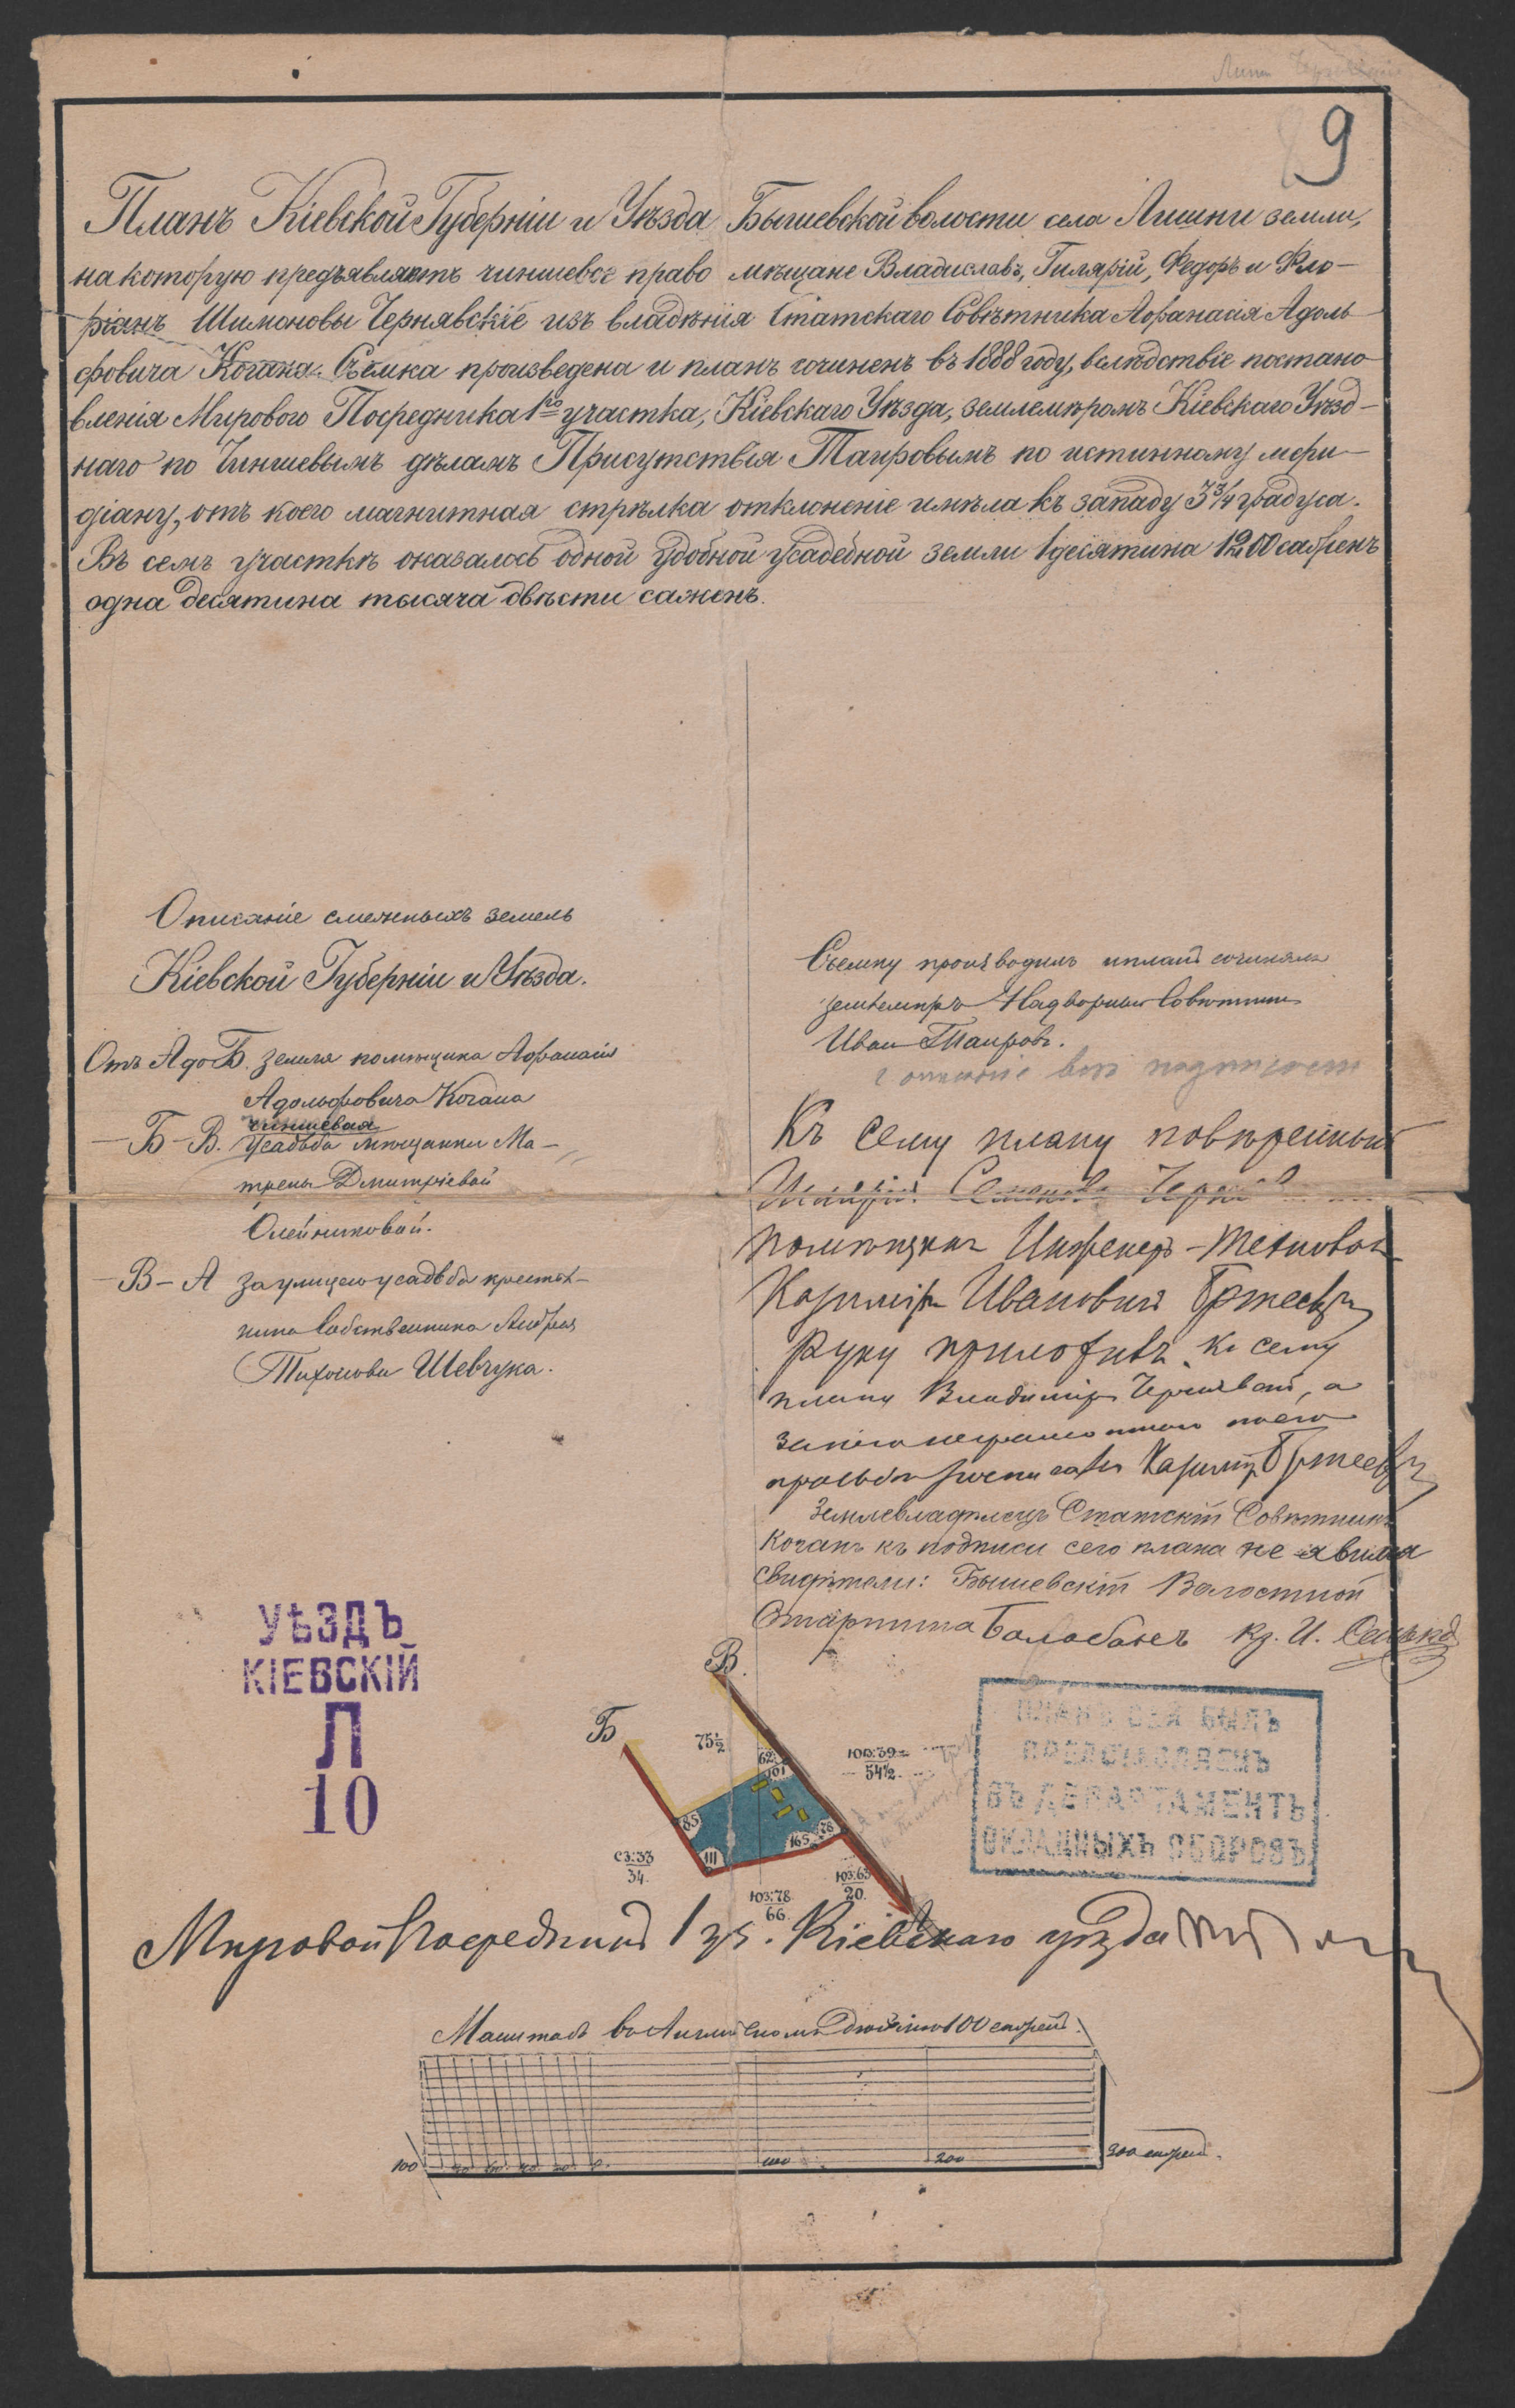 9
Планъ Кіевской Губерніи и Уѣзда Бышевской волости села Лишни земли,
на которую предъявляютъ чиншевое право мѣщане Владиславъ, Гилярій, Федоръ и Фло-
ріанъ Шимоновы Чернявскіе изъ владѣнія Статскаго Совѣтника Афанасія Адоль
фовича Когана. Съемка произведена и планъ сочиненъ въ 1888 году, вслѣдствіе постано
вленія Мироваго Посредника 1го участка, Кіевскаго Уѣзда, землемѣромъ Кіевскаго Уѣзд-
наго по Чиншевымъ дѣламъ Присутствія Таировымъ по истинному мери-
діану, отъ коего магнитная стрѣлка отклоненіе имѣла къ западу 3¾ градуса.
Въ семъ участкѣ оказалось одной удобной усадебной земли 1 десятина 1200 саженъ
одна десятина тысяча двѣсти саженъ.
Описаніе смежныхъ земель
Кіевской Губерніи и Уѣзда.
Отъ А до Б. земля помѣщика Афанасія
Адольфовича Когана
чиншевая
Б-В. усадьба мѣщанки Ма-
трены Дмитріевой
Олейниковой.
В-А за улицею усадьба крестья-
нина собственника Андрея
Тихонова Шевчука.
Съемку производилъ и планъ сочинялъ
землемѣръ Надворный Совѣтникъ
Иванъ Таировъ.
Къ сему плану повѣренный
помѣщикъ Инженеръ-Технологъ
Казиміръ Ивановичъ
руку приложивъ. Къ сему
плану Владиміръ Чернявскій, а
за него неграмотнаго по его
просьбѣ росписался Казиміръ
Землевладѣлецъ Статскій Совѣтникъ
Коганъ къ подписи сего плана не явился
Свидѣтели: Бышевскій Волостной
Старшина Балабанъ
УѢЗДЪ
КІЕВСКІЙ
Л
10
В.
Б
75½
62
101
85
111
165
78
ЮВ:39
54½
СЗ:33
34.
ЮЗ:78
66.
ЮЗ:63
20.
ПЛАНЪ СЕЙ БЫЛЪ
ВЪ ДЕПАРТАМЕНТЪ
ОКЛАДНЫХЪ СБОРОВЪ
Мировой Посредникъ 1 уч. Кіевскаго уѣзда
Масштабъ въ Англійскомъ дюймѣ 100 сажень.
100 80 60 40 20 0 100 200 300 сажень.